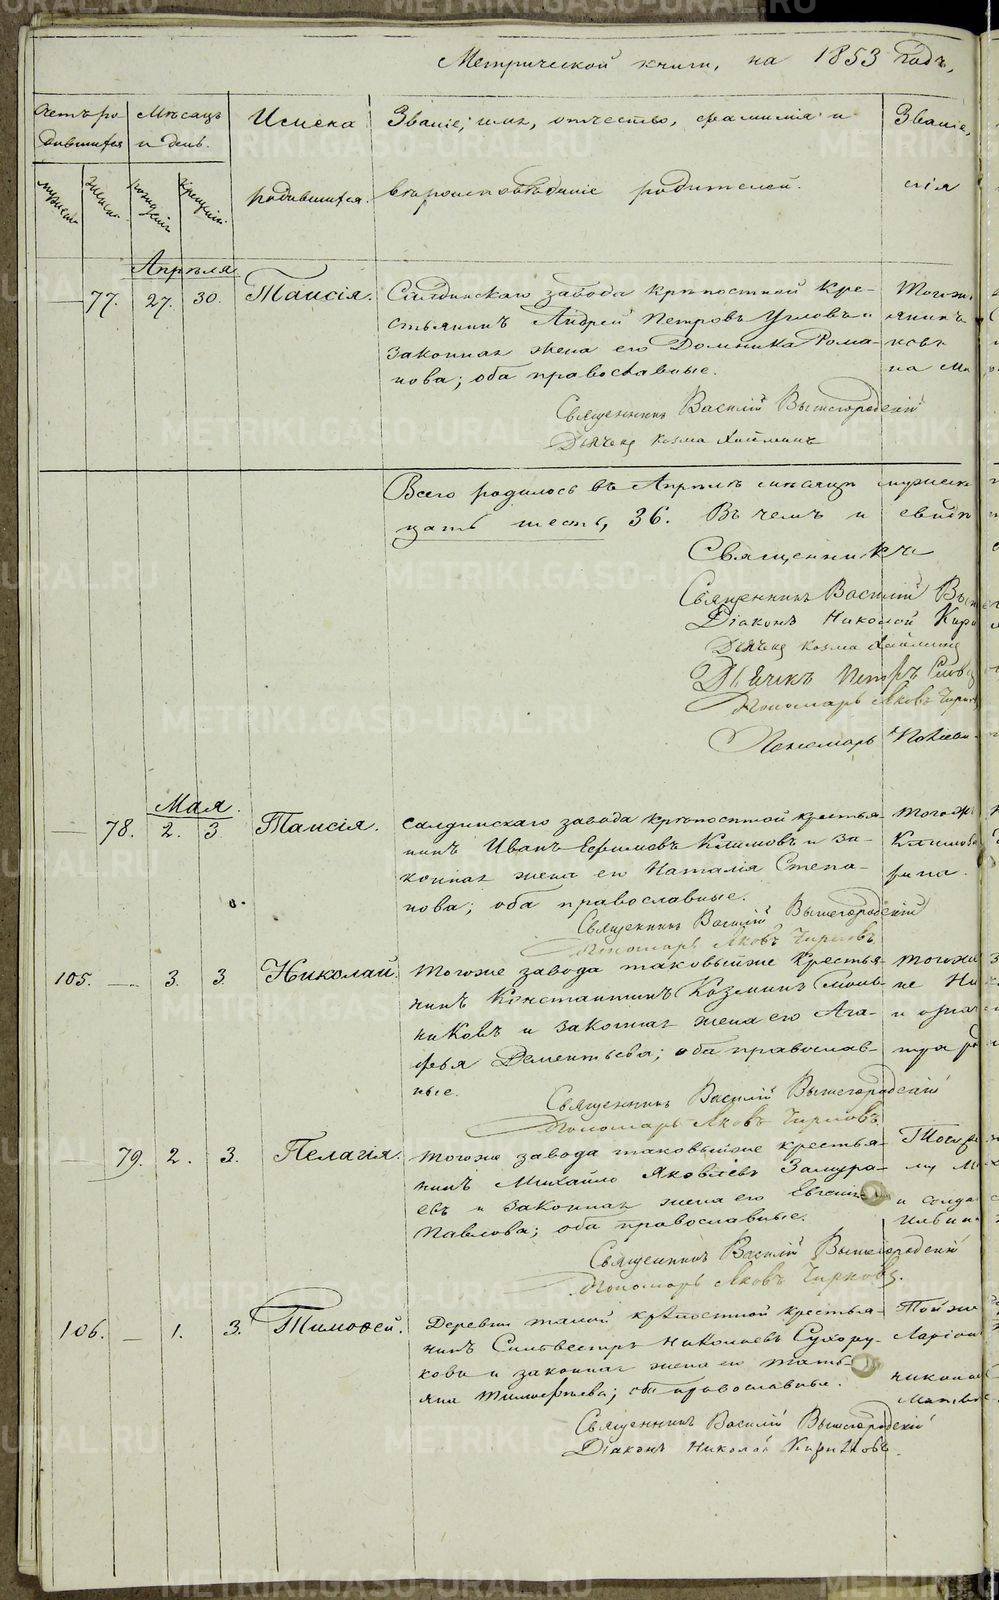 Метрической книги, на 1853 годъ,
Счетъ ро
дившихся
Мѣсяцъ
и день.
Имена
родившихся.
Званіе, имя, отчество, фамилія и
вѣроисповѣданіе родителей.
Званіе,
лія
мужеск.
женск.
рожденія
крещенія
Апрѣля
77. 27. 30. Таисія.
Салдинскаго завода крѣпостной кре-
стьянинъ Андрей Петровъ Угловъ и
законная жена его Домника Рома-
нова; оба православные.
Тогожъ
янинъ
на
Священникъ Василій Вышегородскій
Дьячекъ Козма
Всего родилось въ Апрѣлѣ мѣсяцѣ мужеск
цать шесть, 36. Въ чемъ и свидѣ
Священники
Священникъ Василій Вы
Діаконъ Николай Кир
Дьячекъ Козма
Дьячекъ Петръ Слов
Пономарь Яковъ Чирк
Пономарь
Мая
78. 2. 3. Таисія.
Салдинскаго завода крѣпостной крестья-
нинъ Иванъ Ефимовъ Климовъ и за-
конная жена его Наталія Степа-
нова; оба православные.
Тогожъ
Климов
рина
Священникъ Василій Вышегородскій
Пономарь Яковъ Чирковъ
105. 3. 3. Николай.
Тогоже завода таковыйже крестья-
нинъ Константинъ Козминъ Смоль-
никовъ и законная жена его Ага-
фья Дементьева; оба православ-
ные.
Тогоже
не Ни
Священникъ Василій Вышегородскій
Пономарь Яковъ Чирковъ
79. 2. 3. Пелагія.
Тогоже завода таковыйже крестья-
нинъ Михайло Яковлевъ Замура-
евъ и законная жена его Евгенія
Павлова; оба православные.
и солда
Ильин
Священникъ Василій Вышегородскій
Пономарь Яковъ Чирковъ.
106. 1. 3. Тимофей.
Деревни крѣпостной крестья-
нинъ Сильвестръ Николаевъ Сухору-
ковъ и законная жена его Тать-
яна Тимофеева; оба православные.
Той же
Ларіон
Матв
Священникъ Василій Вышегородскій
Діаконъ Николай
METRIKI.GASO-URAL.RU